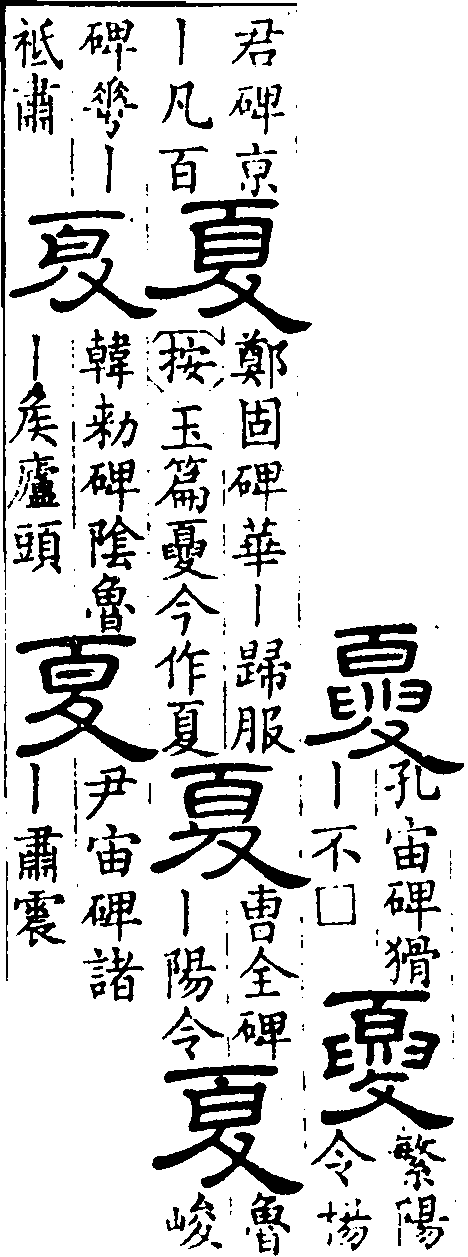 夓
孔宙碑猾
丨不□
夓
繁陽
令楊
君碑亰
丨凡百
夏
鄭固碑華丨歸服
按玉篇夓今作夏
夏
曹全碑
丨陽令
夏
魯
峻
碑丨
祗肅
夏
韓勑碑陰魯
丨侯廬頭
夏
尹宙碑諸
丨肅震